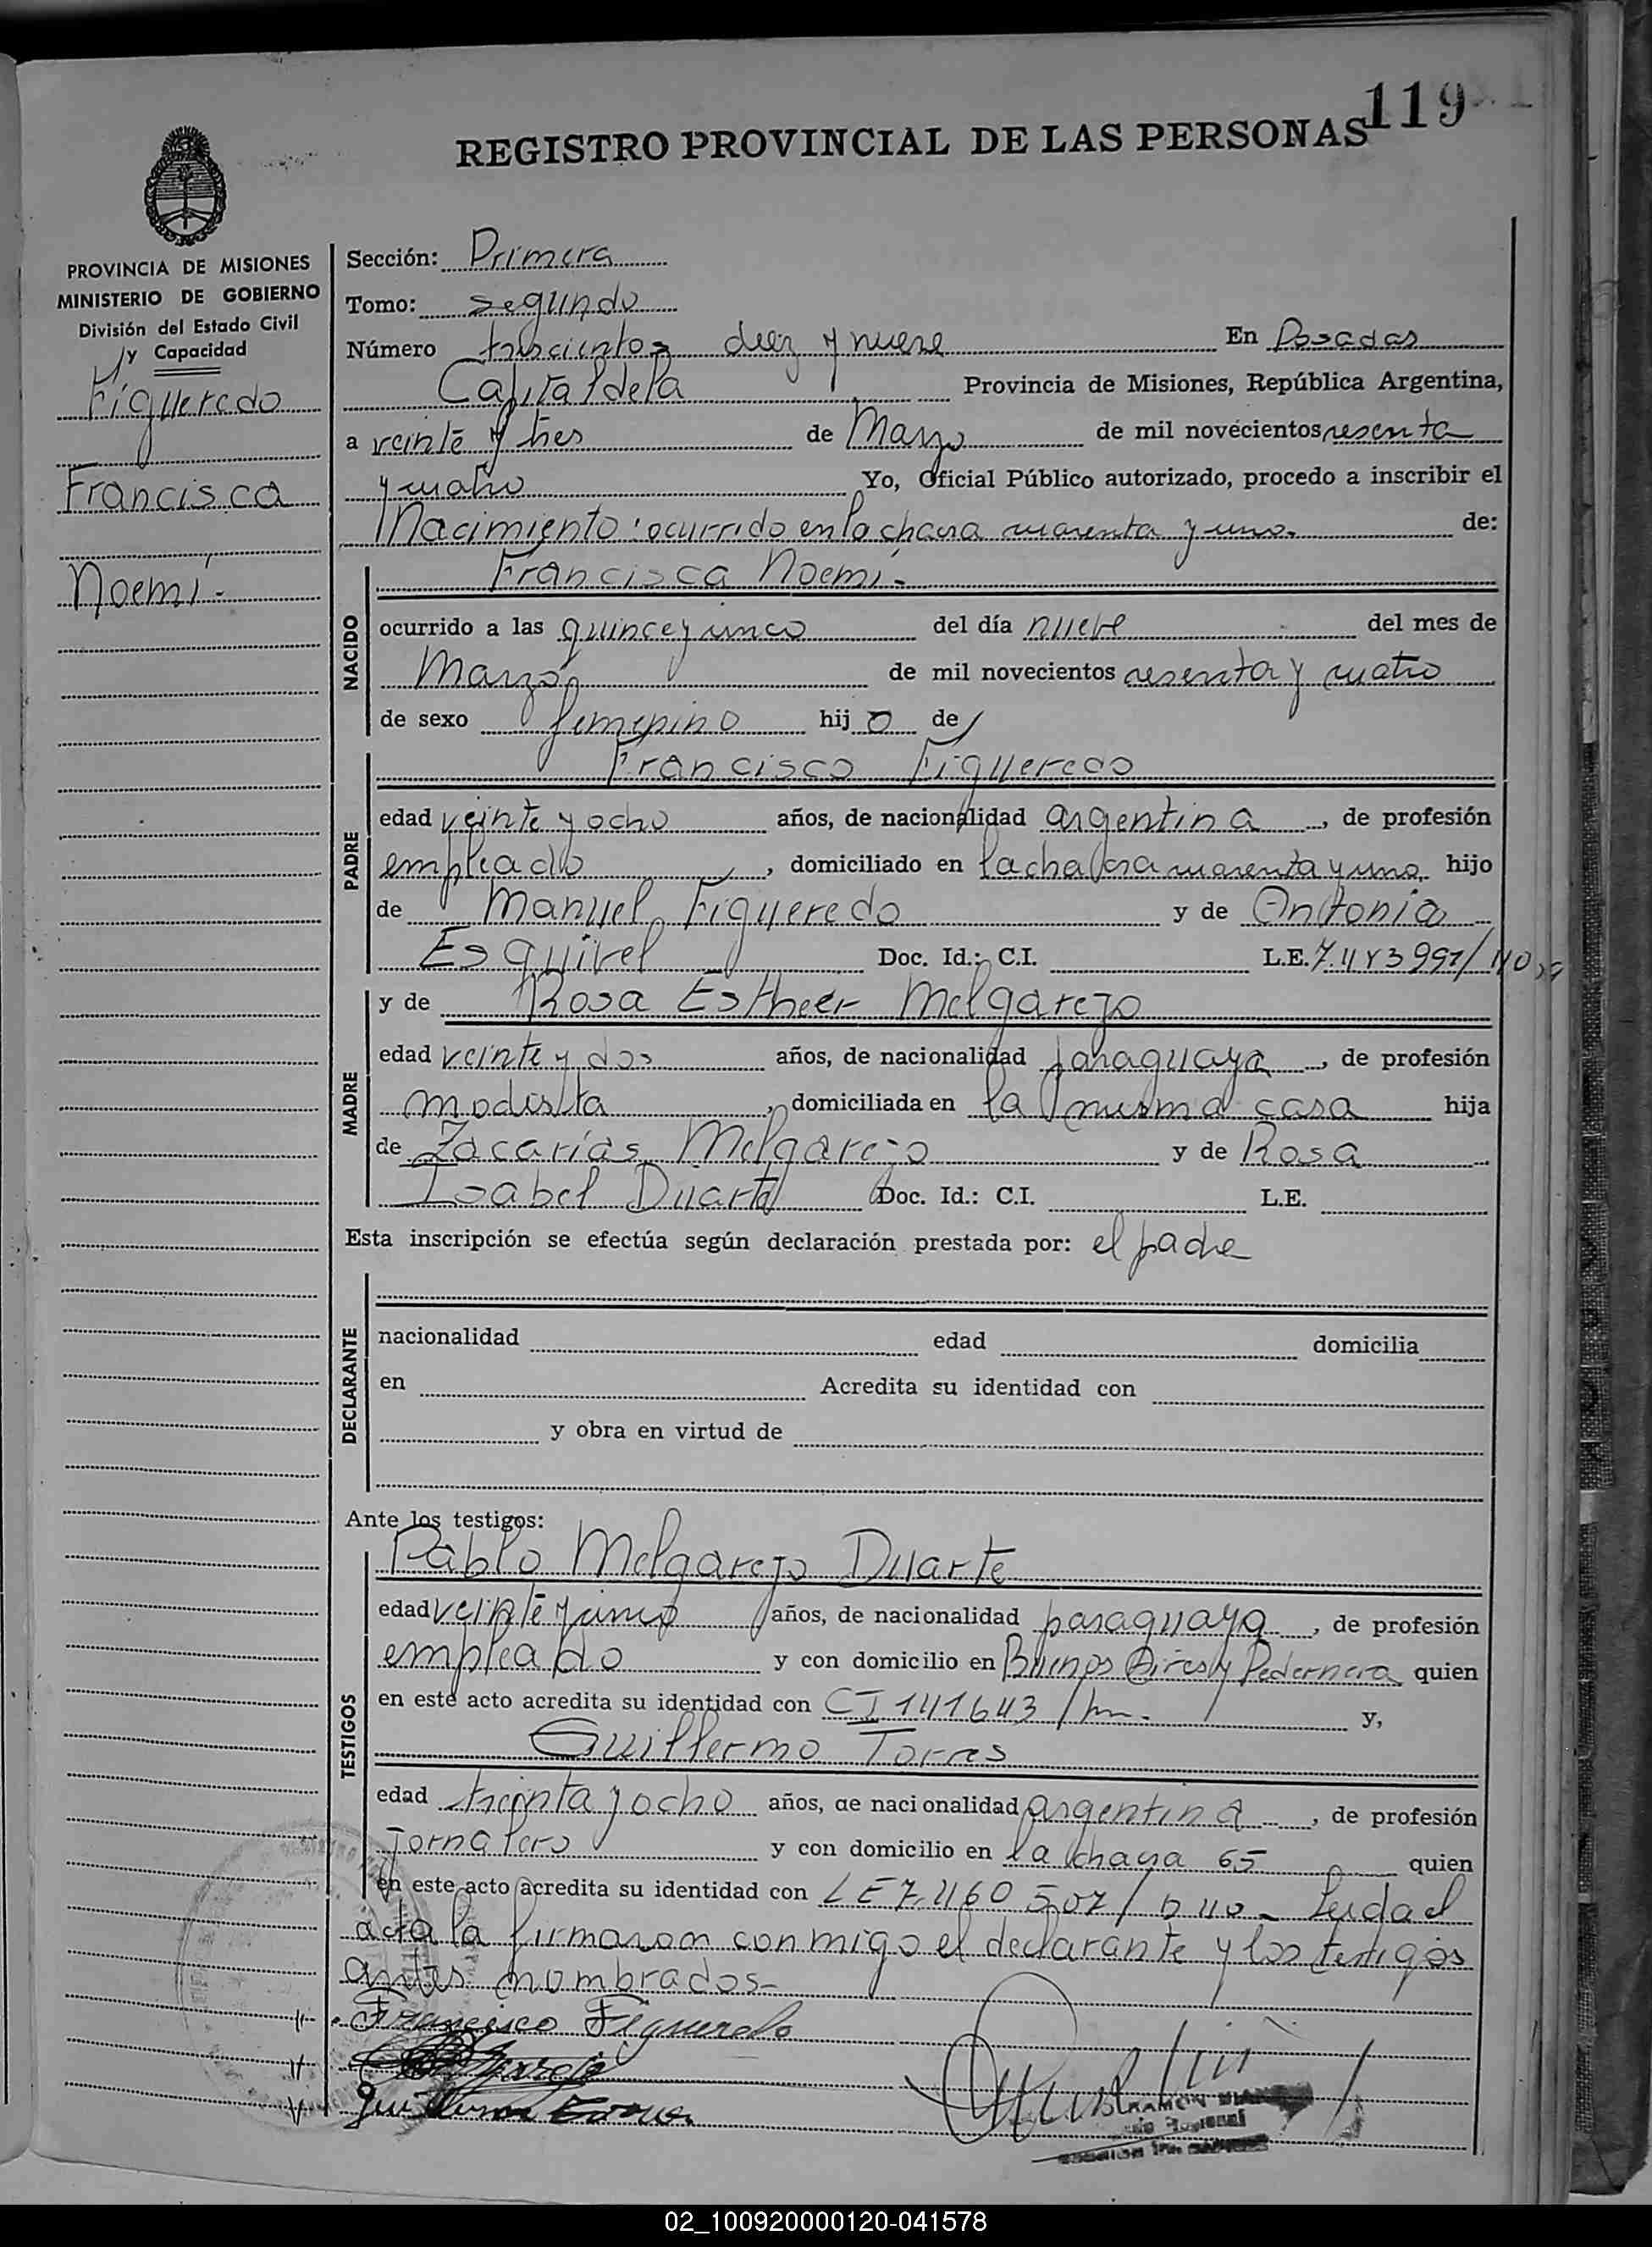 119
REGISTRO PROVINCIAL DE LAS PERSONAS
PROVINCIA DE MISIONES
MINISTERIO DE GOBIERNO
División del Estado Civil
y Capacidad
Figueredo
Francisca
Noemí-
Sección: Primera
Tomo: segundo
Número trescientos diez y nueve En Posadas
Capital de la Provincia de Misiones, República Argentina,
a veinte y tres de Marzo de mil novecientos sesenta
y cuatro Yo, Oficial Público autorizado, procedo a inscribir el
Nacimiento: ocurrido en la chacra cuarenta y uno. de:
Francisca Noemí-
NACIDO
ocurrido a las quince y cinco del día nueve del mes de
Marzo de mil novecientos sesenta y cuatro
de sexo femenino hij o de
Francisco Figueredo
PADRE
edad veinte y ocho años, de nacionalidad argentina, de profesión
empleado, domiciliado en la chacra cuarenta y uno. hijo
de Manuel Figueredo y de Antonia
Esquivel Doc. Id.: C.I. L.E.
y de Rosa Estheer Melgarejo
MADRE
edad veinte y dos años, de nacionalidad paraguaya, de profesión
modista, domiciliada en la misma casa hija
de Zacarías Melgarejo y de Rosa
Isabel Duarte Doc. Id.: C.I. L.E.
Esta inscripción se efectúa según declaración prestada por: el padre
DECLARANTE
nacionalidad edad domicilia
en Acredita su identidad con
y obra en virtud de
Ante los testigos:
Pablo Melgarejo Duarte
TESTIGOS
edad veinte y cinco años, de nacionalidad paraguaya, de profesión
empleado y con domicilio en Buenos Aires y Pedernera quien
en este acto acredita su identidad con CI 141643 / y,
Guillermo Torres
edad treinta y ocho años, de nacionalidad argentina, de profesión
Jornalero y con domicilio en la chacra 65 quien
en este acto acredita su identidad con LE 7.460 507/ Leida el
acta la firmaron conmigo el declarante y los testigos
antes nombrados-
Francisco Figueredo
Guillermo Torres
RAMON
Regional
02_100920000120-041578